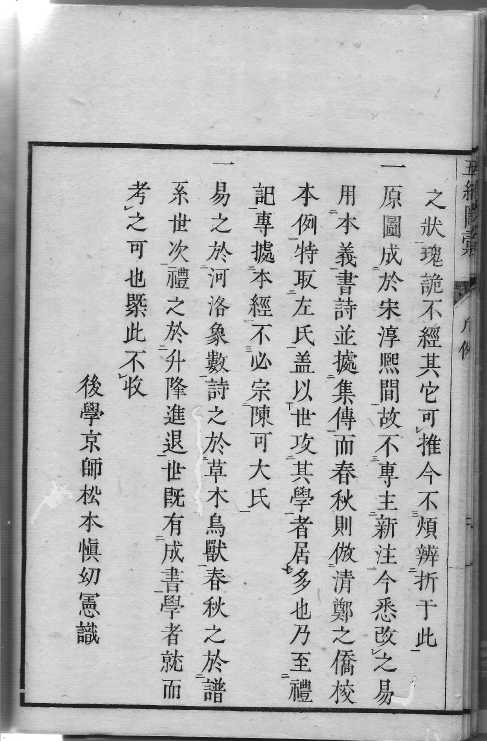 五經圖彙
凡例
之狀瑰詭不經其它可推今不煩辨折于此
一原圖成於宋淳熙間故不專主新注今悉改之易
用本義書詩並據集傳而春秋則倣清鄭之僑校
本例特取左氏盖以世攻其學者居多也乃至禮
記專據本經不必宗陳可大氏
一易之於河洛象數詩之於草木鳥獸春秋之於譜
系世次禮之於升降進退世既有成書學者就而
考之可也槩此不收
後學京師松本愼幼憲識